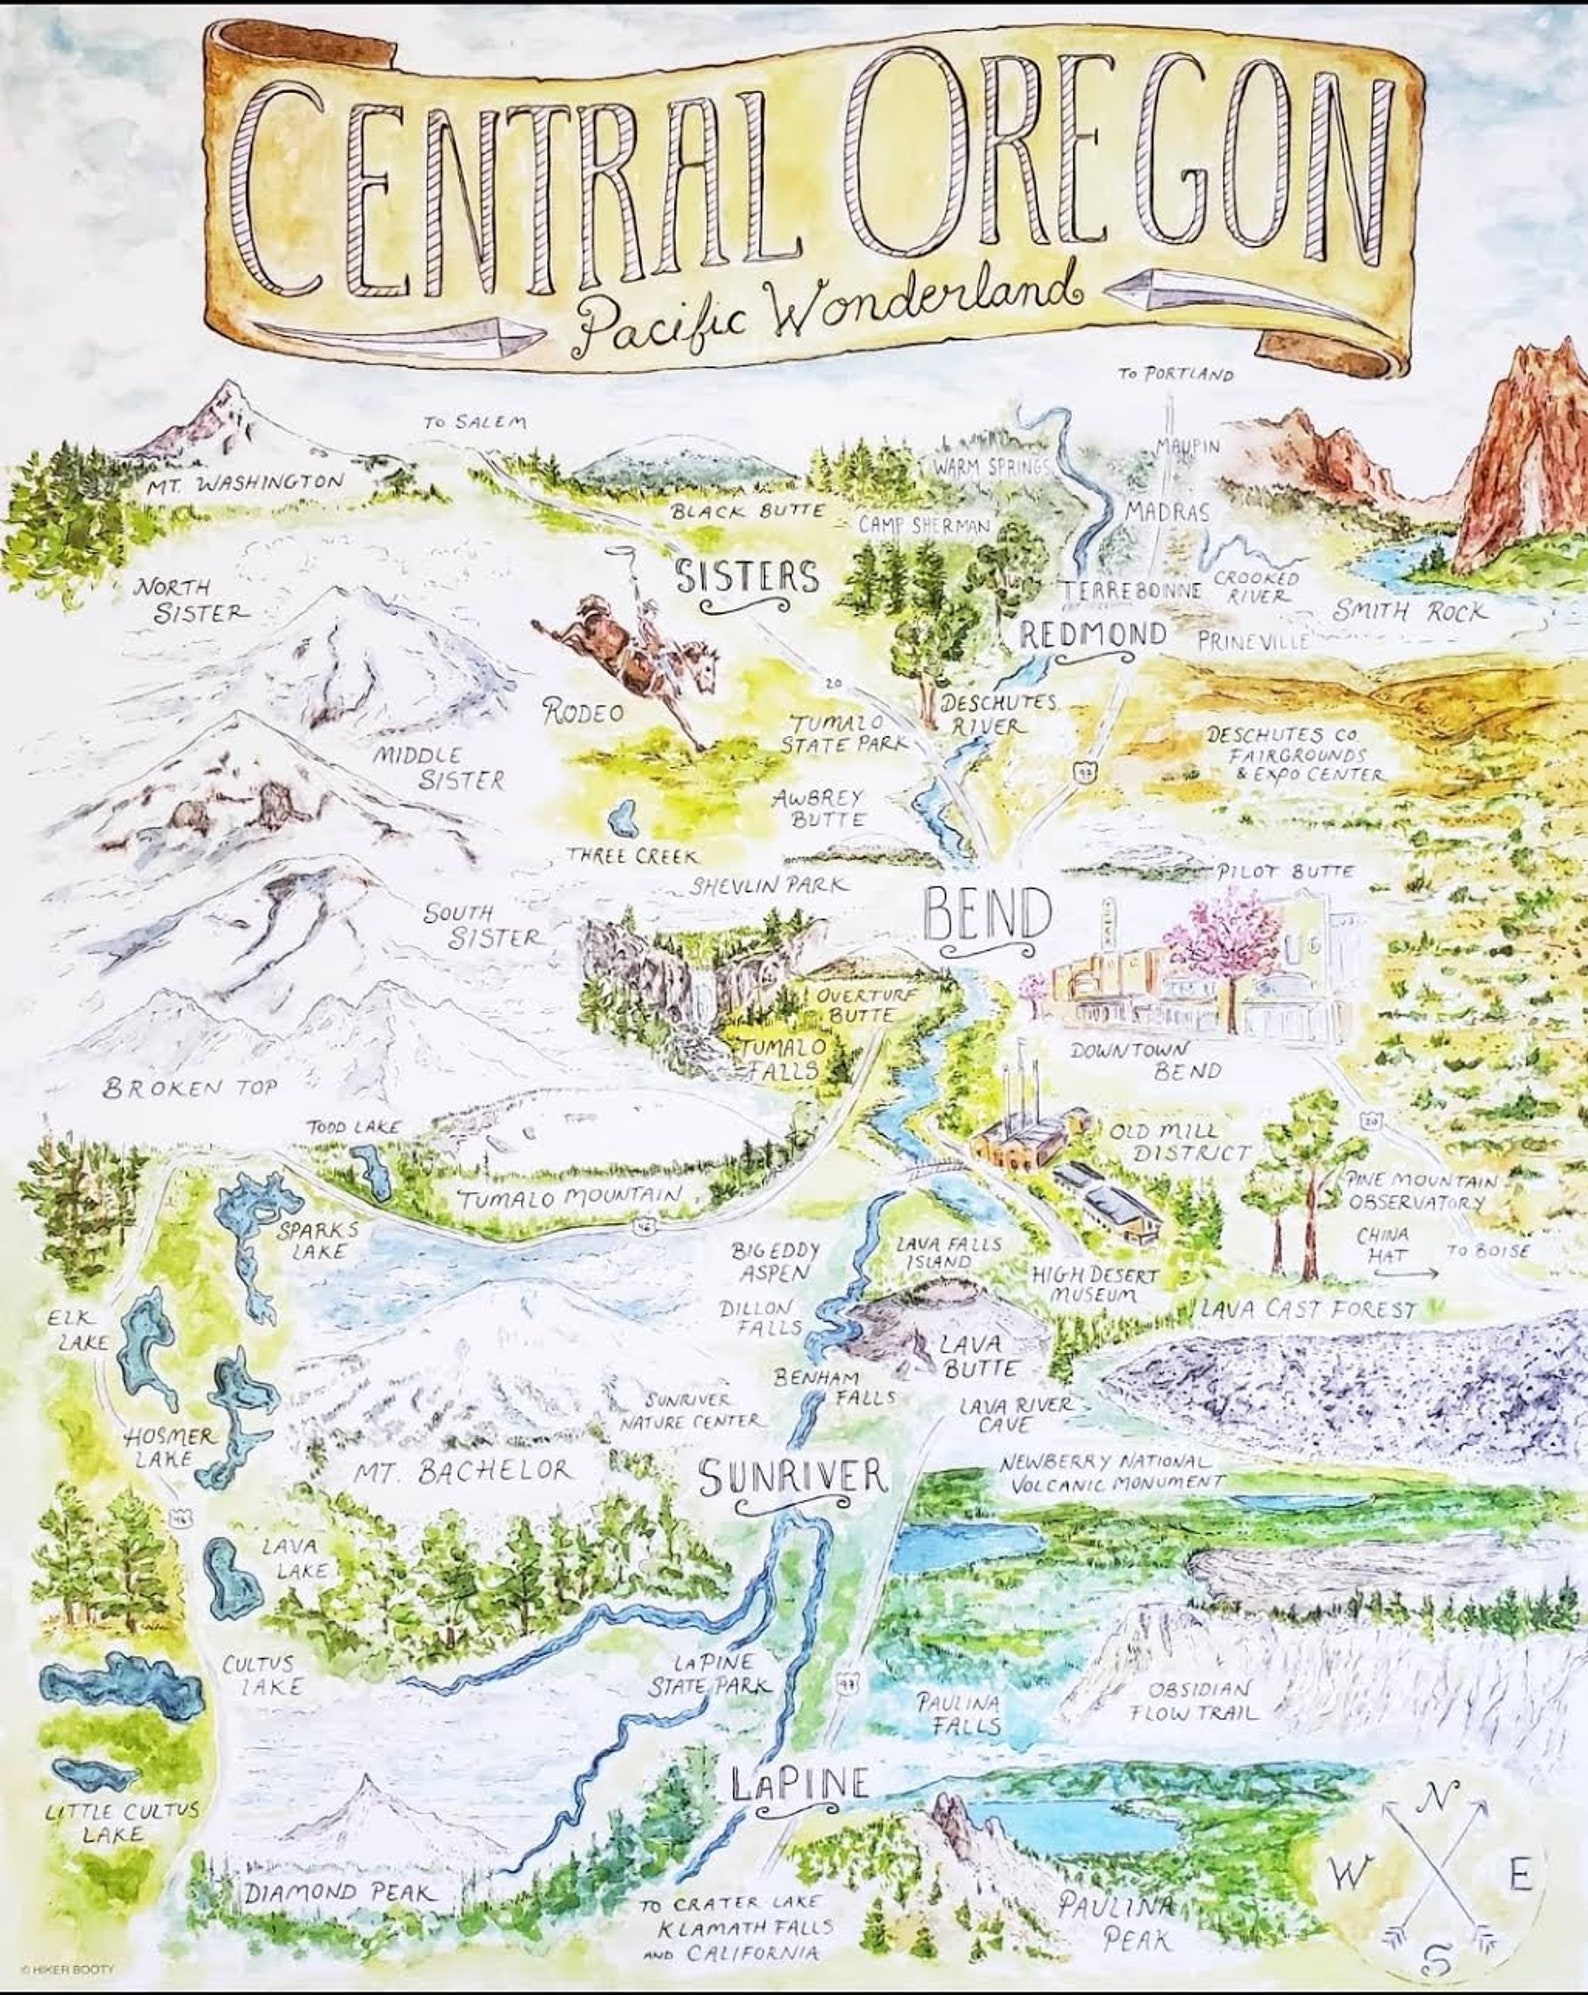 CENTRAL OREGON
Pacific Wonderland
TO PORTLAND
TO SALEM
MT. WASHINGTON
BLACK BUTTE
WARM SPRINGS
MAUPIN
CAMP SHERMAN
MADRAS
NORTH
SISTER
SISTERS
TERREBONNE
CROOKED
RIVER
SMITH ROCK
REDMOND
PRINEVILLE
20
RODEO
DESCHUTES
RIVER
TUMALO
STATE PARK
DESCHUTES CO.
FAIRGROUNDS
& EXPO CENTER
MIDDLE
SISTER
97
AWBREY
BUTTE
THREE CREEK
SHEVLIN PARK
PILOT BUTTE
SOUTH
SISTER
BEND
OVERTURF
BUTTE
TUMALO
FALLS
DOWNTOWN
BEND
BROKEN TOP
TODD LAKE
20
OLD MILL
DISTRICT
TUMALO MOUNTAIN
46
PINE MOUNTAIN
OBSERVATORY
SPARKS
LAKE
BIG EDDY
ASPEN
LAVA FALLS
ISLAND
CHINA
HAT
TO BOISE
HIGH DESERT
MUSEUM
ELK
LAKE
DILLON
FALLS
LAVA CAST FOREST
LAVA
BUTTE
BENHAM
FALLS
SUNRIVER
NATURE CENTER
LAVA RIVER
CAVE
HOSMER
LAKE
MT. BACHELOR
SUNRIVER
NEWBERRY NATIONAL
VOLCANIC MONUMENT
46
LAVA
LAKE
CULTUS
LAKE
LAPINE
STATE PARK
97
PAULINA
FALLS
OBSIDIAN
FLOW TRAIL
LAPINE
LITTLE CULTUS
LAKE
DIAMOND PEAK
TO CRATER LAKE
KLAMATH FALLS
AND CALIFORNIA
PAULINA
PEAK
N
W
E
S
© HIKER BOOTY